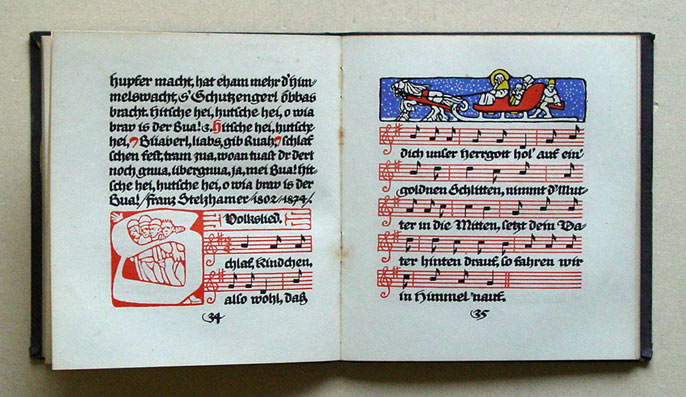 hupfer macht, hat eham mehr d'him-
melswacht, s'Schutzengerl öbbas
bracht. Hitsche hei, hutsche hei, o wia
brav is der Bua! 3. Hitsche hei, hutsche
hei, Büaberl, liabs, gib Ruah, schlaf
schen fest, tram zua, woan tuast dr dert
noch gnua, übergnua, ja, mei Bua! Hit-
sche hei, hutsche hei, o wia brav is der
Bua! / Franz Stelzhamer / 1802 / 1874 /.
Volkslied.
Schlaf, Kindchen,
also wohl, daß
34
dich unser Herrgott hol' auf ein'
goldnen Schlitten, nimmt d'Mut-
ter in die Mitten, setzt dein Va-
ter hinten drauf, so fahren wir
in Himmel 'nauf.
35